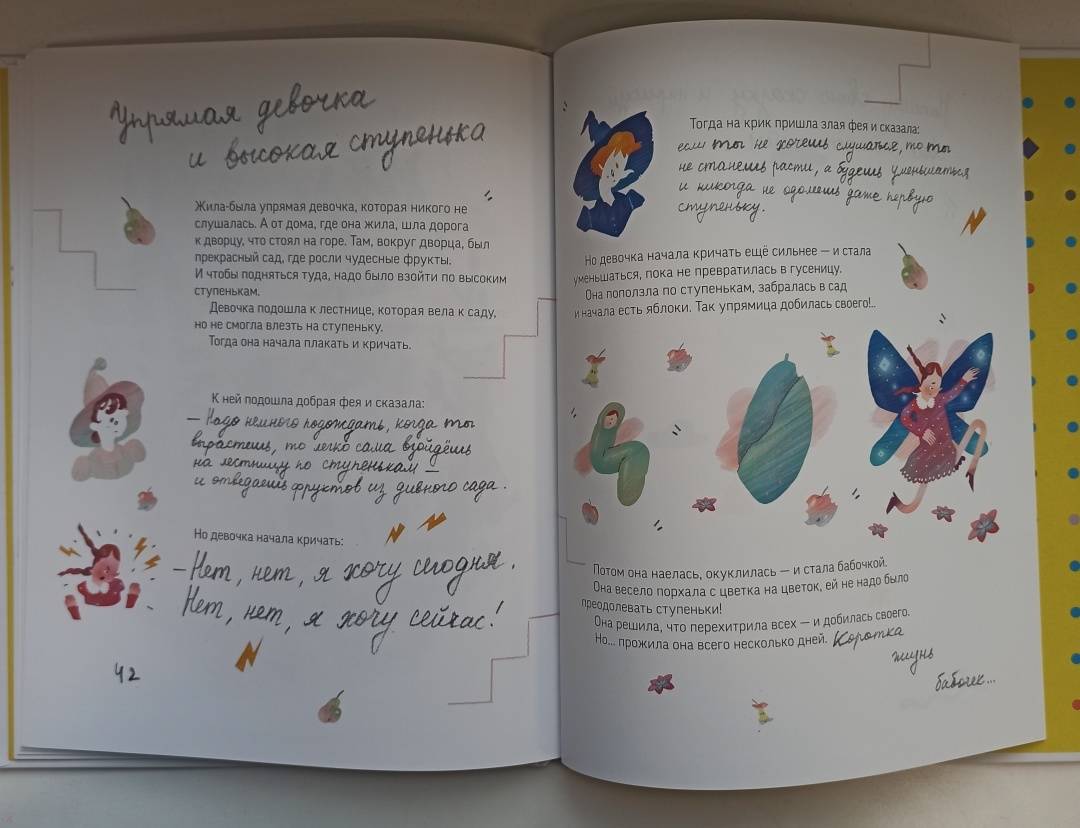 Упрямая девочка
и высокая ступенька
Жила-была упрямая девочка, которая никого не
слушалась. А от дома, где она жила, шла дорога
к дворцу, что стоял на горе. Там, вокруг дворца, был
прекрасный сад, где росли чудесные фрукты.
И чтобы подняться туда, надо было взойти по высоким
ступенькам.
Девочка подошла к лестнице, которая вела к саду,
но не смогла влезть на ступеньку.
Тогда она начала плакать и кричать.
К ней подошла добрая фея и сказала:
— Надо немного подождать, когда ты
вырастешь, то легко сама взойдёшь
на лестницу по ступенькам —
и отведаешь фруктов из дивного сада.
Но девочка начала кричать:
— Нет, нет, я хочу сегодня.
Нет, нет, я хочу сейчас!
42
Тогда на крик пришла злая фея и сказала:
если ты не хочешь слушаться, то ты
не станешь расти, а будешь уменьшаться
и никогда не одолеешь даже первую
ступеньку.
Но девочка начала кричать ещё сильнее — и стала
уменьшаться, пока не превратилась в гусеницу.
Она поползла по ступенькам, забралась в сад
и начала есть яблоки. Так упрямица добилась своего!..
Потом она наелась, окуклилась — и стала бабочкой.
Она весело порхала с цветка на цветок, ей не надо было
преодолевать ступеньки!
Она решила, что перехитрила всех — и добилась своего.
Но... прожила она всего несколько дней. Коротка
жизнь
бабочек...